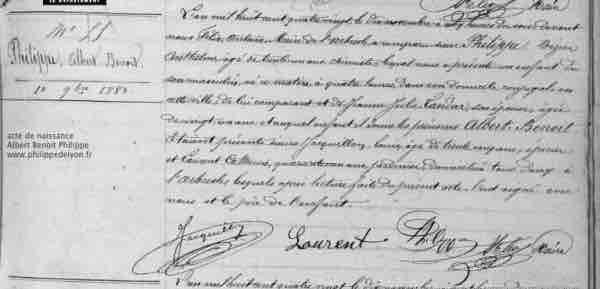 Maire
N° 55
Philippe, Albert Benoit
10 9bre 1880
acte de naissance
Albert Benoit Philippe
www.philippedelyon.fr
L'an mil huit cent quatre vingt le dix novembre à heures du soir devant
nous Félix Maire de l'Arbresle a comparu sieur Philippe
Anthelme âgé de trente un ans chimiste lequel nous a présenté un enfant du
sexe masculin, né ce matin à quatre heures dans son domicile conjugal en
cette ville, de lui comparant et de Jeanne Julie Landar son épouse, âgée
de vingt un ans et auquel enfant il donne les prénoms Albert, Benoit
Étaient présents sieurs Jacquillon, âgé de trente ans, épicier
et Laurent quarante un ans domiciliés tous deux à
l'Arbresle, lesquels après lecture faite du présent acte l'ont signé avec
nous et le père de l'enfant.
Laurent Maire
L'an mil huit cent quatre vingt le dix novembre